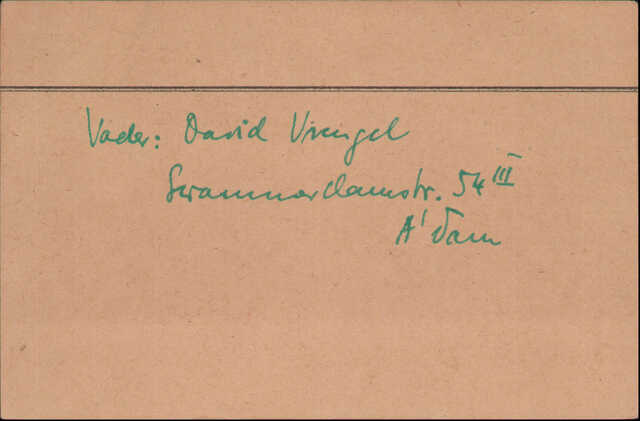 Vader: David Vrengel
Swammerdamstr. 54 III
A'dam